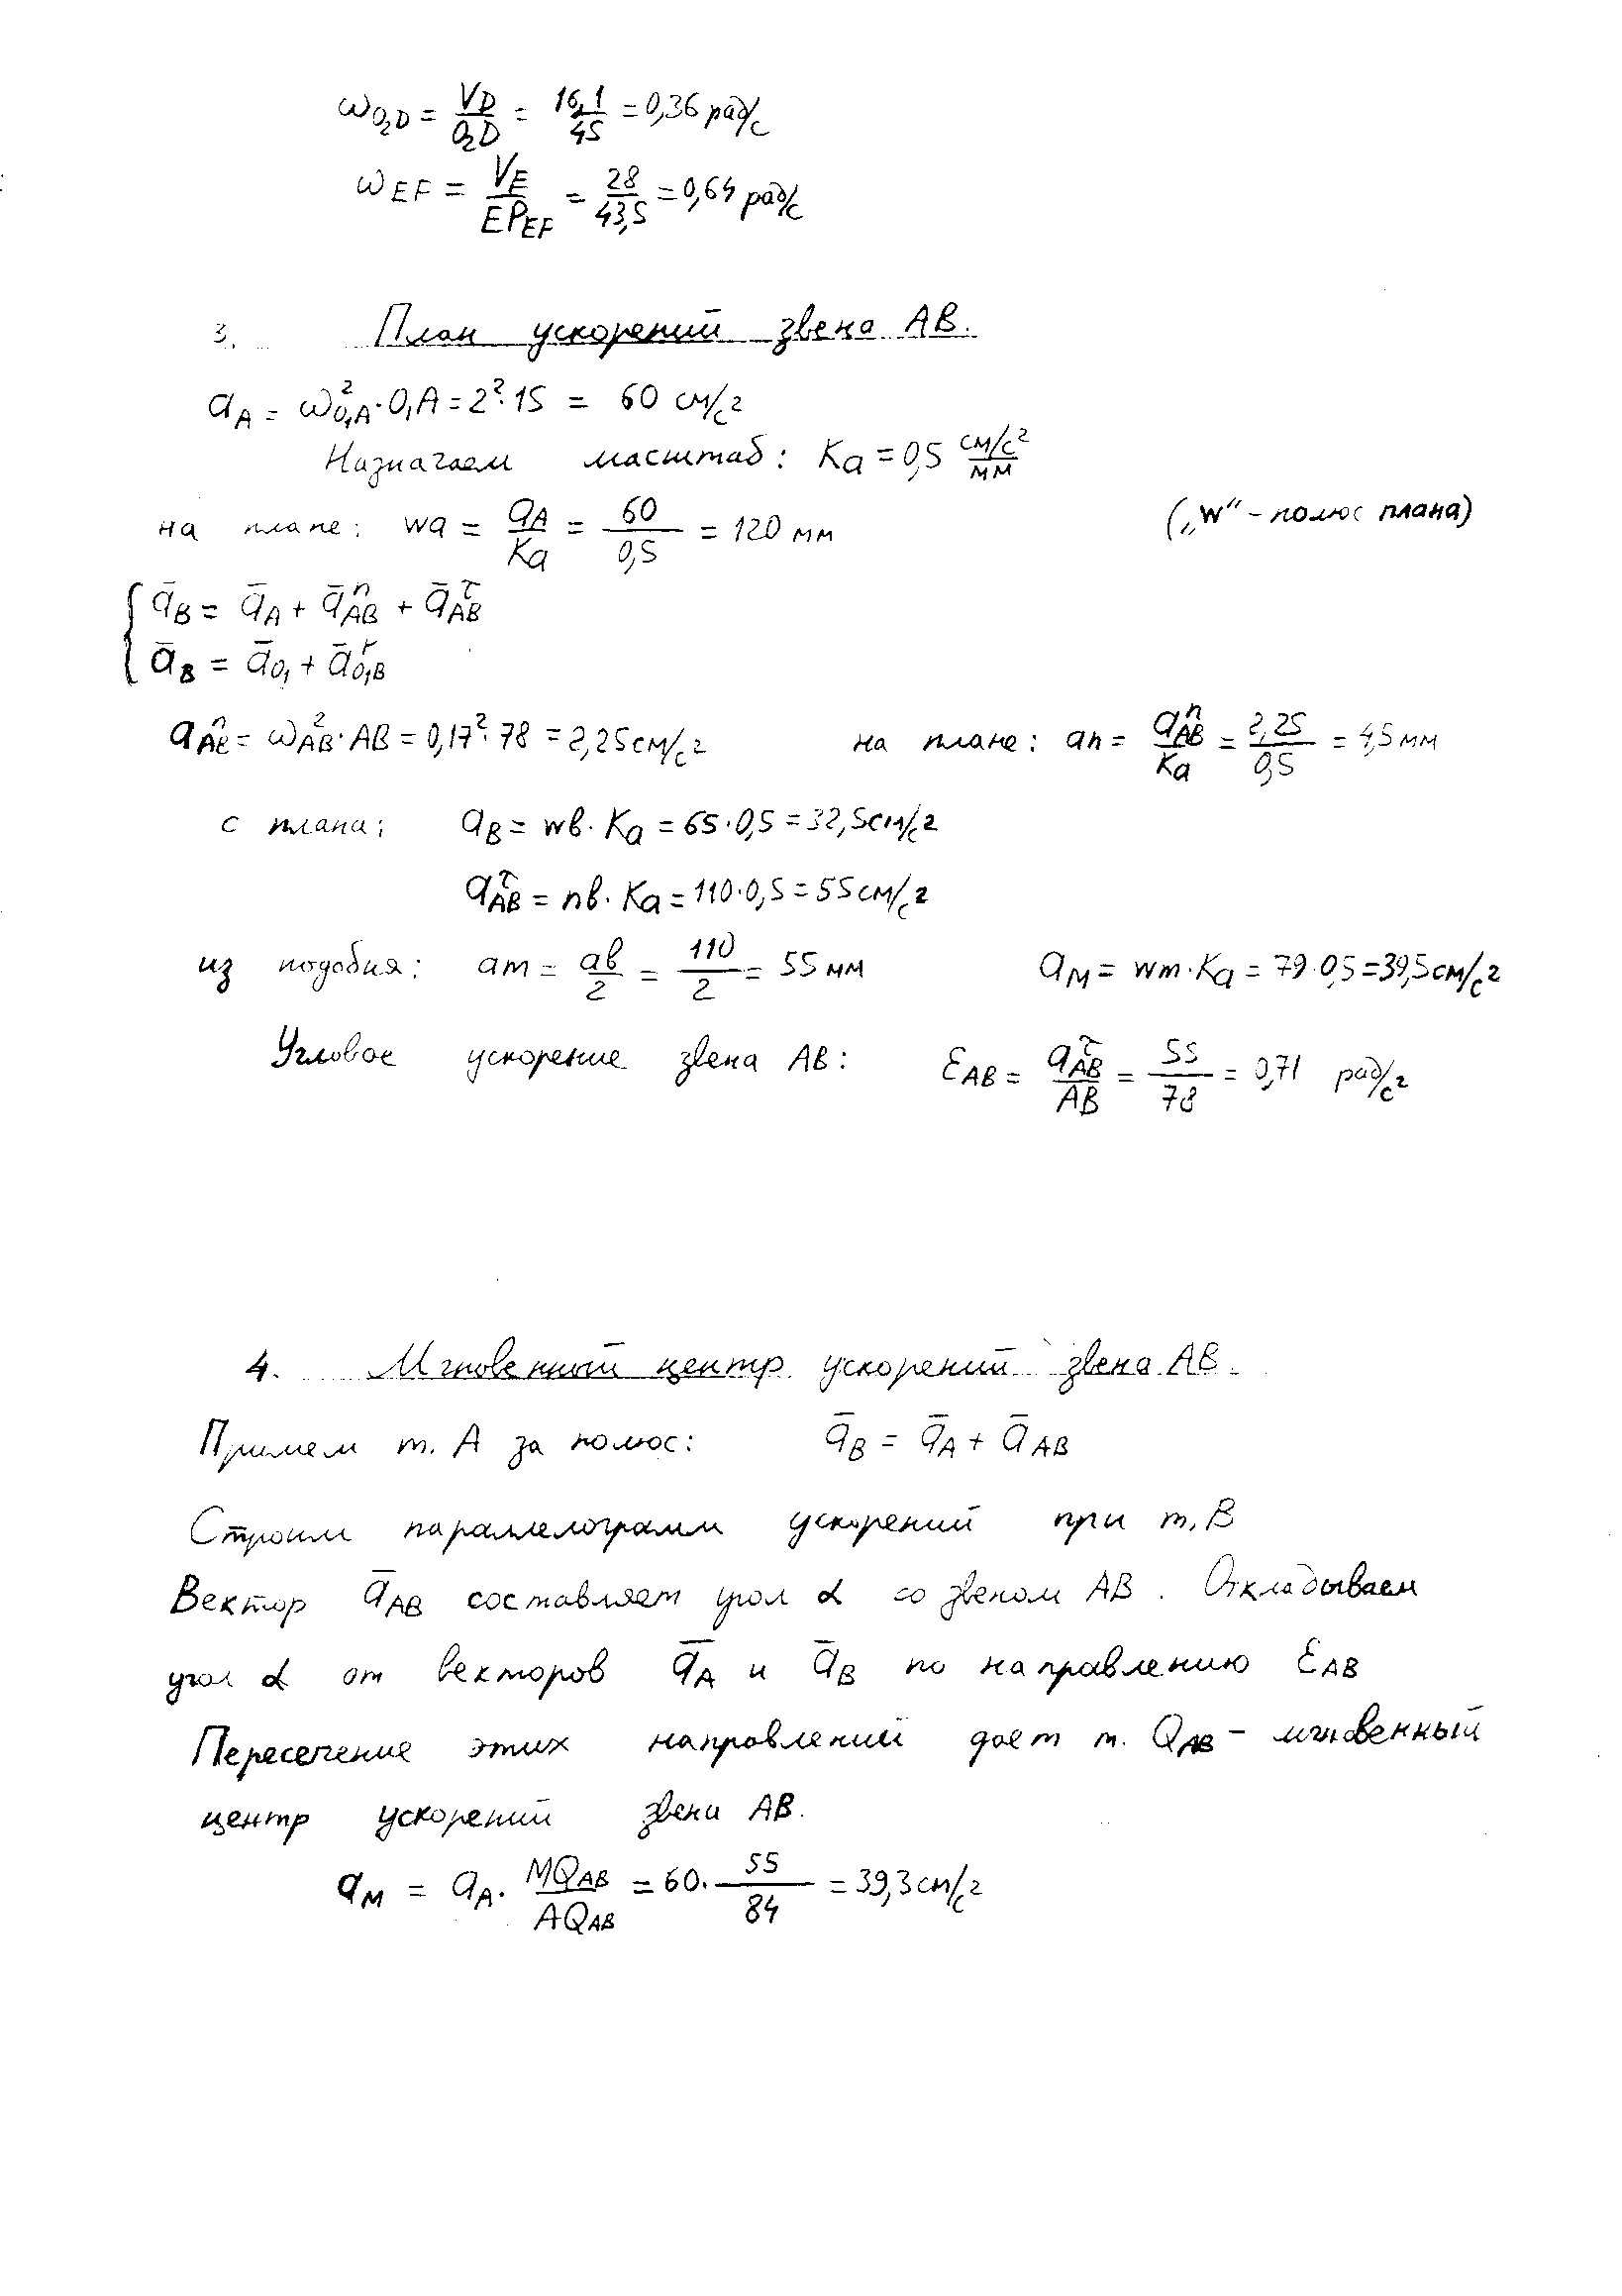 ω_{O₂D} = V_D / O₂D = 16,1 / 45 = 0,36 рад/с
ω_{EF} = V_E / EP_{EF} = 28 / 43,5 = 0,64 рад/с
3. План ускорений звена АВ.
a_A = ω²_{O₁A}·O₁A = 2²·15 = 60 см/с²
Назначаем масштаб: K_a = 0,5 см/с² / мм
на плане: wa = a_A / K_a = 60 / 0,5 = 120 мм („w“ - полюс плана)
{ ā_B = ā_A + ā^n_{AB} + ā^τ_{AB}
ā_B = ā_{O₁} + ā^r_{O₁B}
a^n_{AB} = ω²_{AB}·AB = 0,17²·78 = 2,25 см/с² на плане: an = a^n_{AB} / K_a = 2,25 / 0,5 = 4,5 мм
с плана: a_B = wв·K_a = 65·0,5 = 32,5 см/с²
a^τ_{AB} = nв·K_a = 110·0,5 = 55 см/с²
из подобия: am = aв / 2 = 110 / 2 = 55 мм a_M = wm·K_a = 79·0,5 = 39,5 см/с²
Угловое ускорение звена АВ: ε_{AB} = a^τ_{AB} / AB = 55 / 78 = 0,71 рад/с²
4. Мгновенный центр ускорений звена АВ.
Примем т. А за полюс: ā_B = ā_A + ā_{AB}
Строим параллелограмм ускорений при т. В
Вектор ā_{AB} составляет угол α со звеном АВ. Откладываем
угол α от векторов ā_A и ā_B по направлению ε_{AB}
Пересечение этих направлений дает т. Q_{AB} - мгновенный
центр ускорений звена АВ.
a_M = a_A · MQ_{AB} / AQ_{AB} = 60 · 55 / 84 = 39,3 см/с²